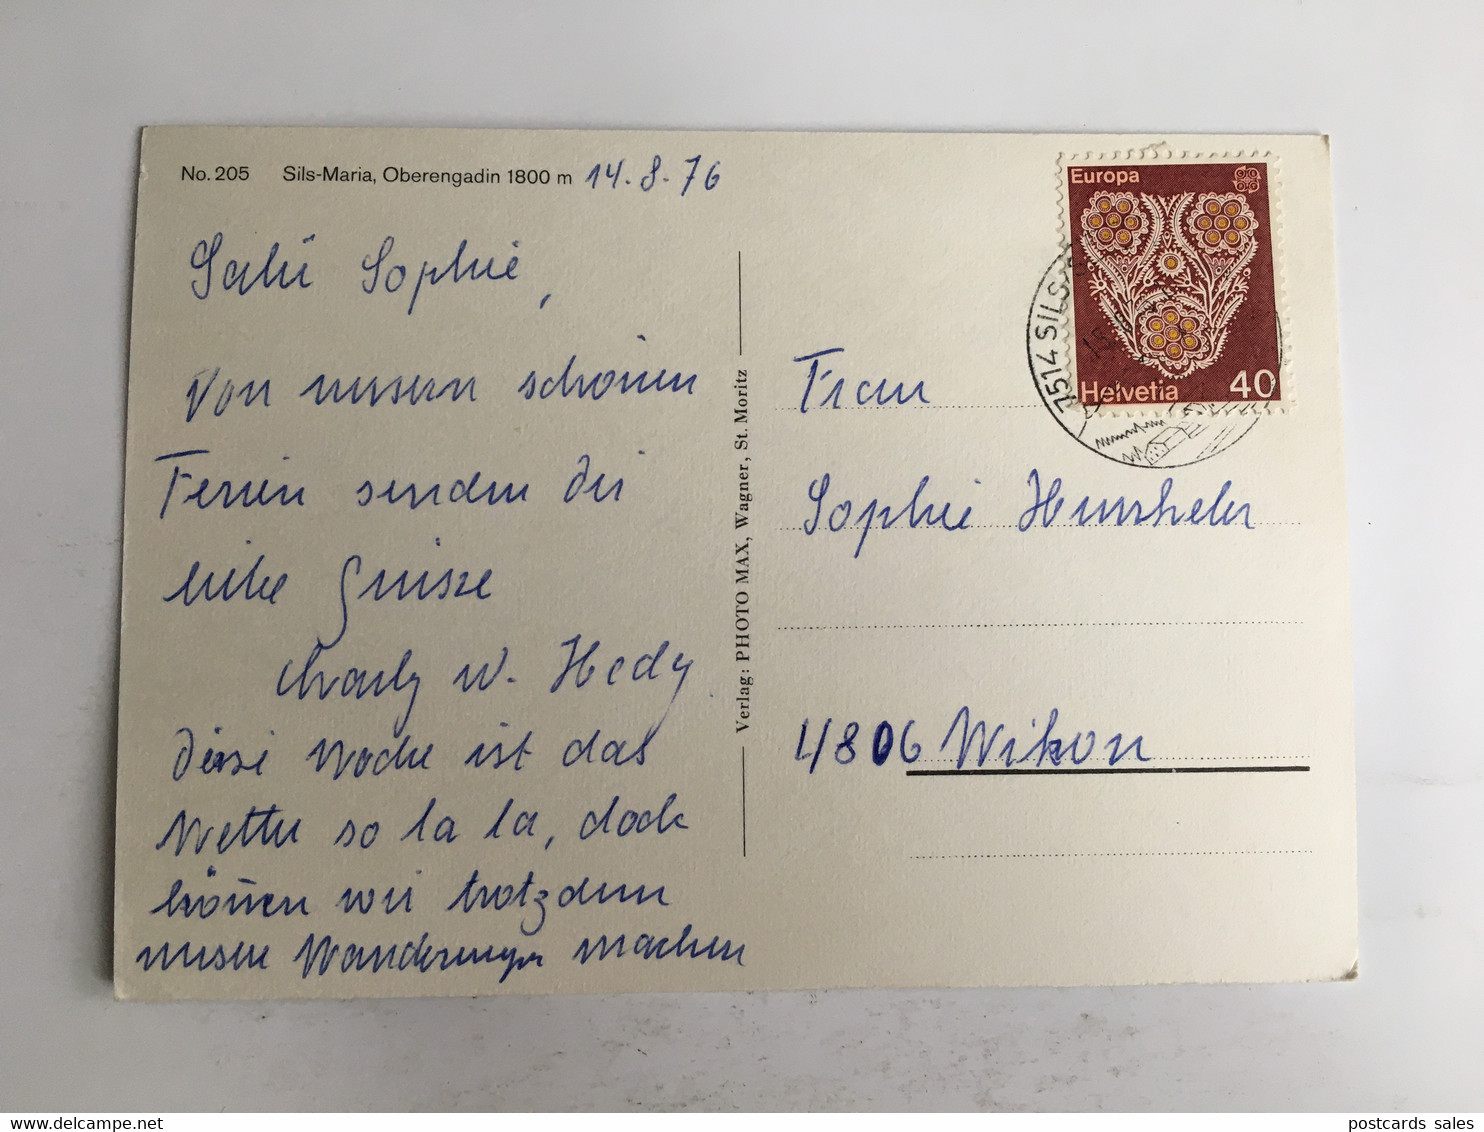 No. 205 Sils-Maria, Oberengadin 1800 m 14.8.76
Salü Sophie,
Von unsern schönen
Ferien senden dir
liebe Grüsse
Charly u. Hedy
diese Woche ist das
Wetter so la la, doch
können wir trotzdem
unsere Wanderungen machen
Verlag: PHOTO MAX, Wagner, St. Moritz
Europa
Helvetia 40
7514 SILS
Frau
Sophie
4806 Wikon
postcards sales